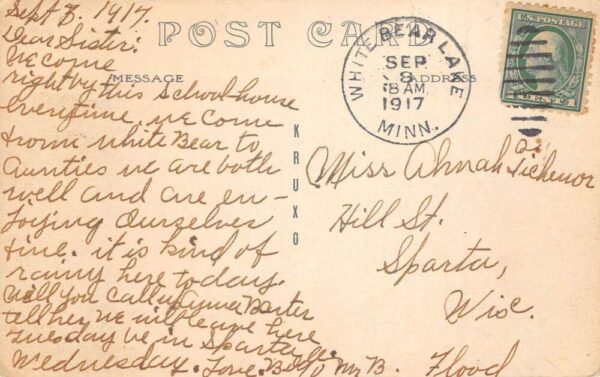 Sept 8. 1917.
POST CARD
Dear Sister:
We come
right by this School house
everytime we come
from White Bear to
Aunties we are both
well and are en-
joying Ourselves
fine. it is kind of
rainy here today.
Will you call up
tell her we will leave here
Tuesday be in Sparta
Wednesday. Love. 
MESSAGE
ADDRESS
KRUXO
WHITE BEAR LAKE
SEP
8
8 AM
1917
MINN.
U.S. POSTAGE
Miss Tichenor
Hill St.
Sparta,
Wis.
c/o Mr B. Flood